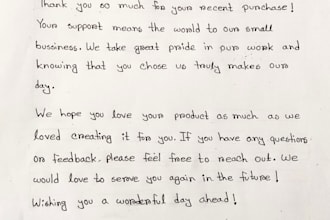 Thank you so much for your recent purchase!
Your support means the world to our small
bussiness. We take great pride in our work and
knowing that you chose us truly makes our
day.
We hope you love your product as much as we
loved creating it for you. If you have any questions
or feedback. please feel free to reach out. We
would love to serve you again in the future!
Wishing you a wonderful day ahead!